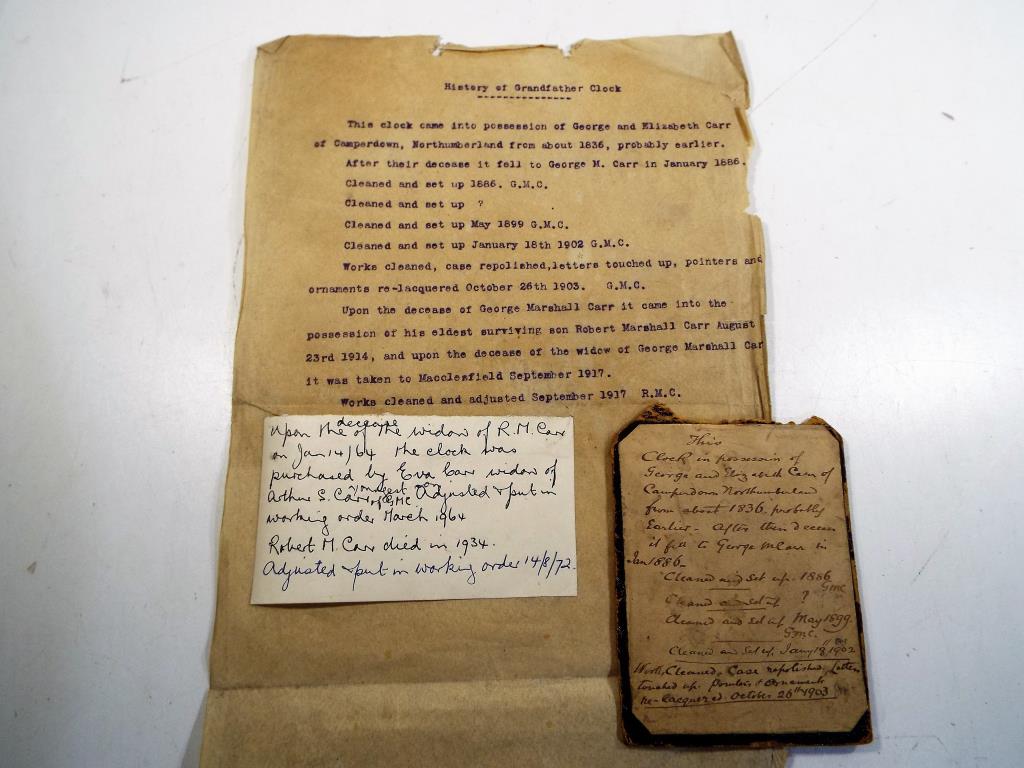 History of Grandfather Clock
This clock came into possession of George and Elizabeth Carr
of Camperdown, Northumberland from about 1836, probably earlier.
After their decease it fell to George M. Carr in January 1886.
Cleaned and set up 1886. G.M.C.
Cleaned and set up ?
Cleaned and set up May 1899 G.M.C.
Cleaned and set up January 18th 1902 G.M.C.
Works cleaned, case repolished,letters touched up, pointers and
ornaments re-lacquered October 26th 1903. G.M.C.
Upon the decease of George Marshall Carr it came into the
possession of his eldest surviving son Robert Marshall Carr August
23rd 1914, and upon the decease of the widow of George Marshall Car
it was taken to Macclesfield September 1917.
Works cleaned and adjusted September 1917 R.M.C.
Upon the decease of the widow of R.M. Carr
on Jan 14/64 the clock was
purchased by Eva Carr widow of
Arthur S. Carr youngest son of GMC. Adjusted & put in
working order March 1964
Robert M. Carr died in 1934.
Adjusted & put in working order 14/8/72.
This
Clock in possession of
George and Elizabeth Carr of
Camperdown Northumberland
from about 1836. probably
Earlier. After their decease
it fell to George M Carr in
Jan 1886.
Cleaned and Set up. 1886
GMC
Cleaned and Set up ?
Cleaned and set up May 1899.
GMC.
Cleaned and Set up. Jany 18th 1902
Works Cleaned, Case repolished, Letters
touched up. Pointers & Ornaments
re-lacquered. October 26th 1903